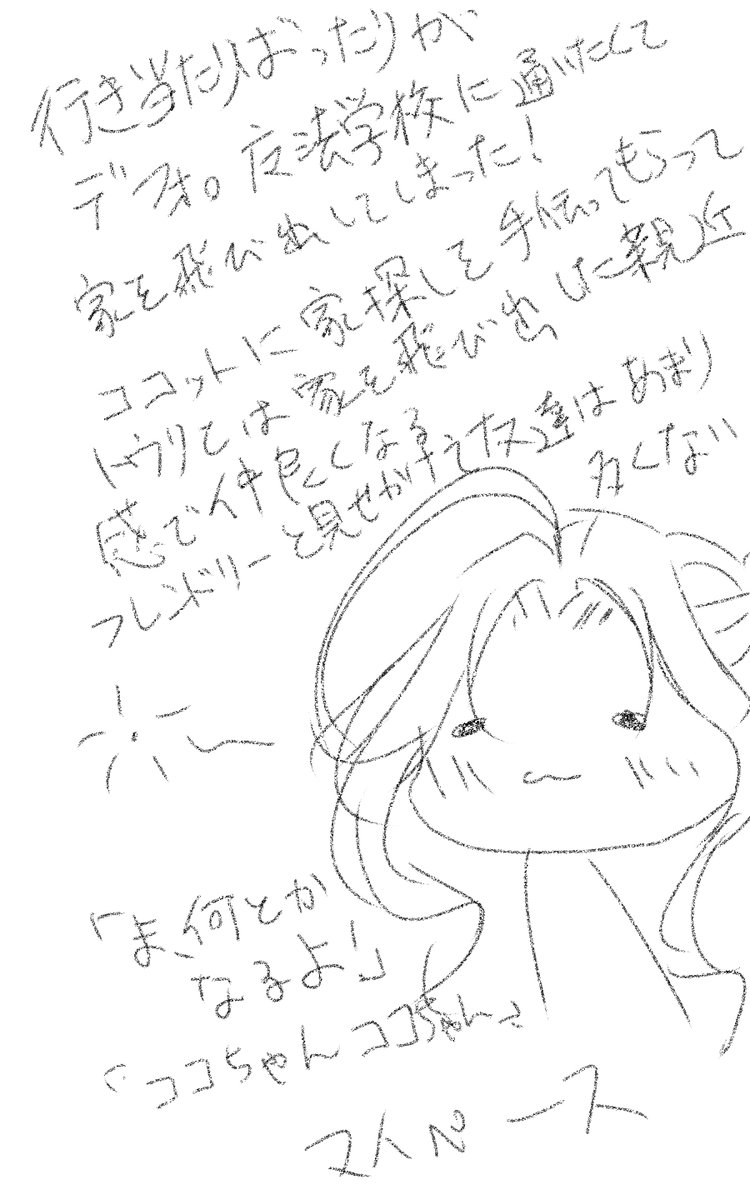 行き当たりばったりが
デフォ。魔法学校に通いたくて
家を飛び出してしまった!
ココットに家探しを手伝ってもらって
トウリとは家を飛び出した親近
感で仲良くなる
フレンドリーと見せかけて友達はあまり
多くない
「ま、何とか
なるよ」
「ココちゃんココちゃん」
マイペース